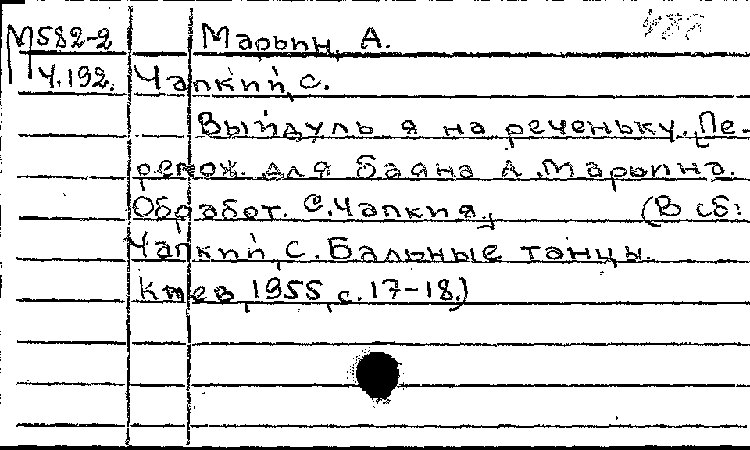 М582-2 Марьин, А.
Ч.192. Чапкий, С.
Выйдуль я на реченьку. [Пе-
релож. для баяна А. Марьина.
Обработ. С. Чапкия.] (В сб:
Чапкий, С. Бальные танцы.
Киев, 1955, с. 17-18.)